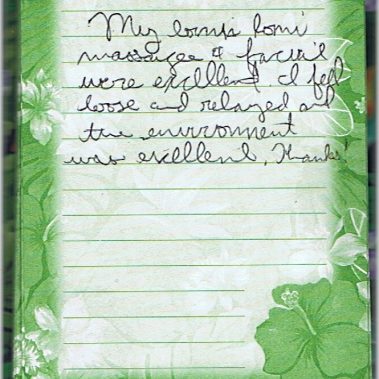 My lomi lomi
massage & facial
were excellent. I feel
loose and relaxed and
the environment
was excellent, Thanks!